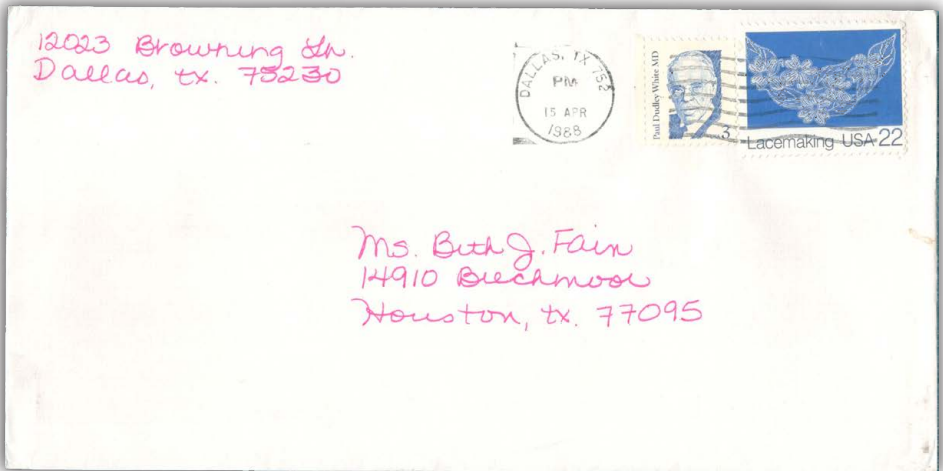 12023 Browning Ln.
Dallas, tx. 75230
DALLAS, TX 752
PM
15 APR
1988
Paul Dudley White MD
3
Lacemaking USA 22
Ms. Beth J. Fain
14910 Beechmoor
Houston, tx. 77095